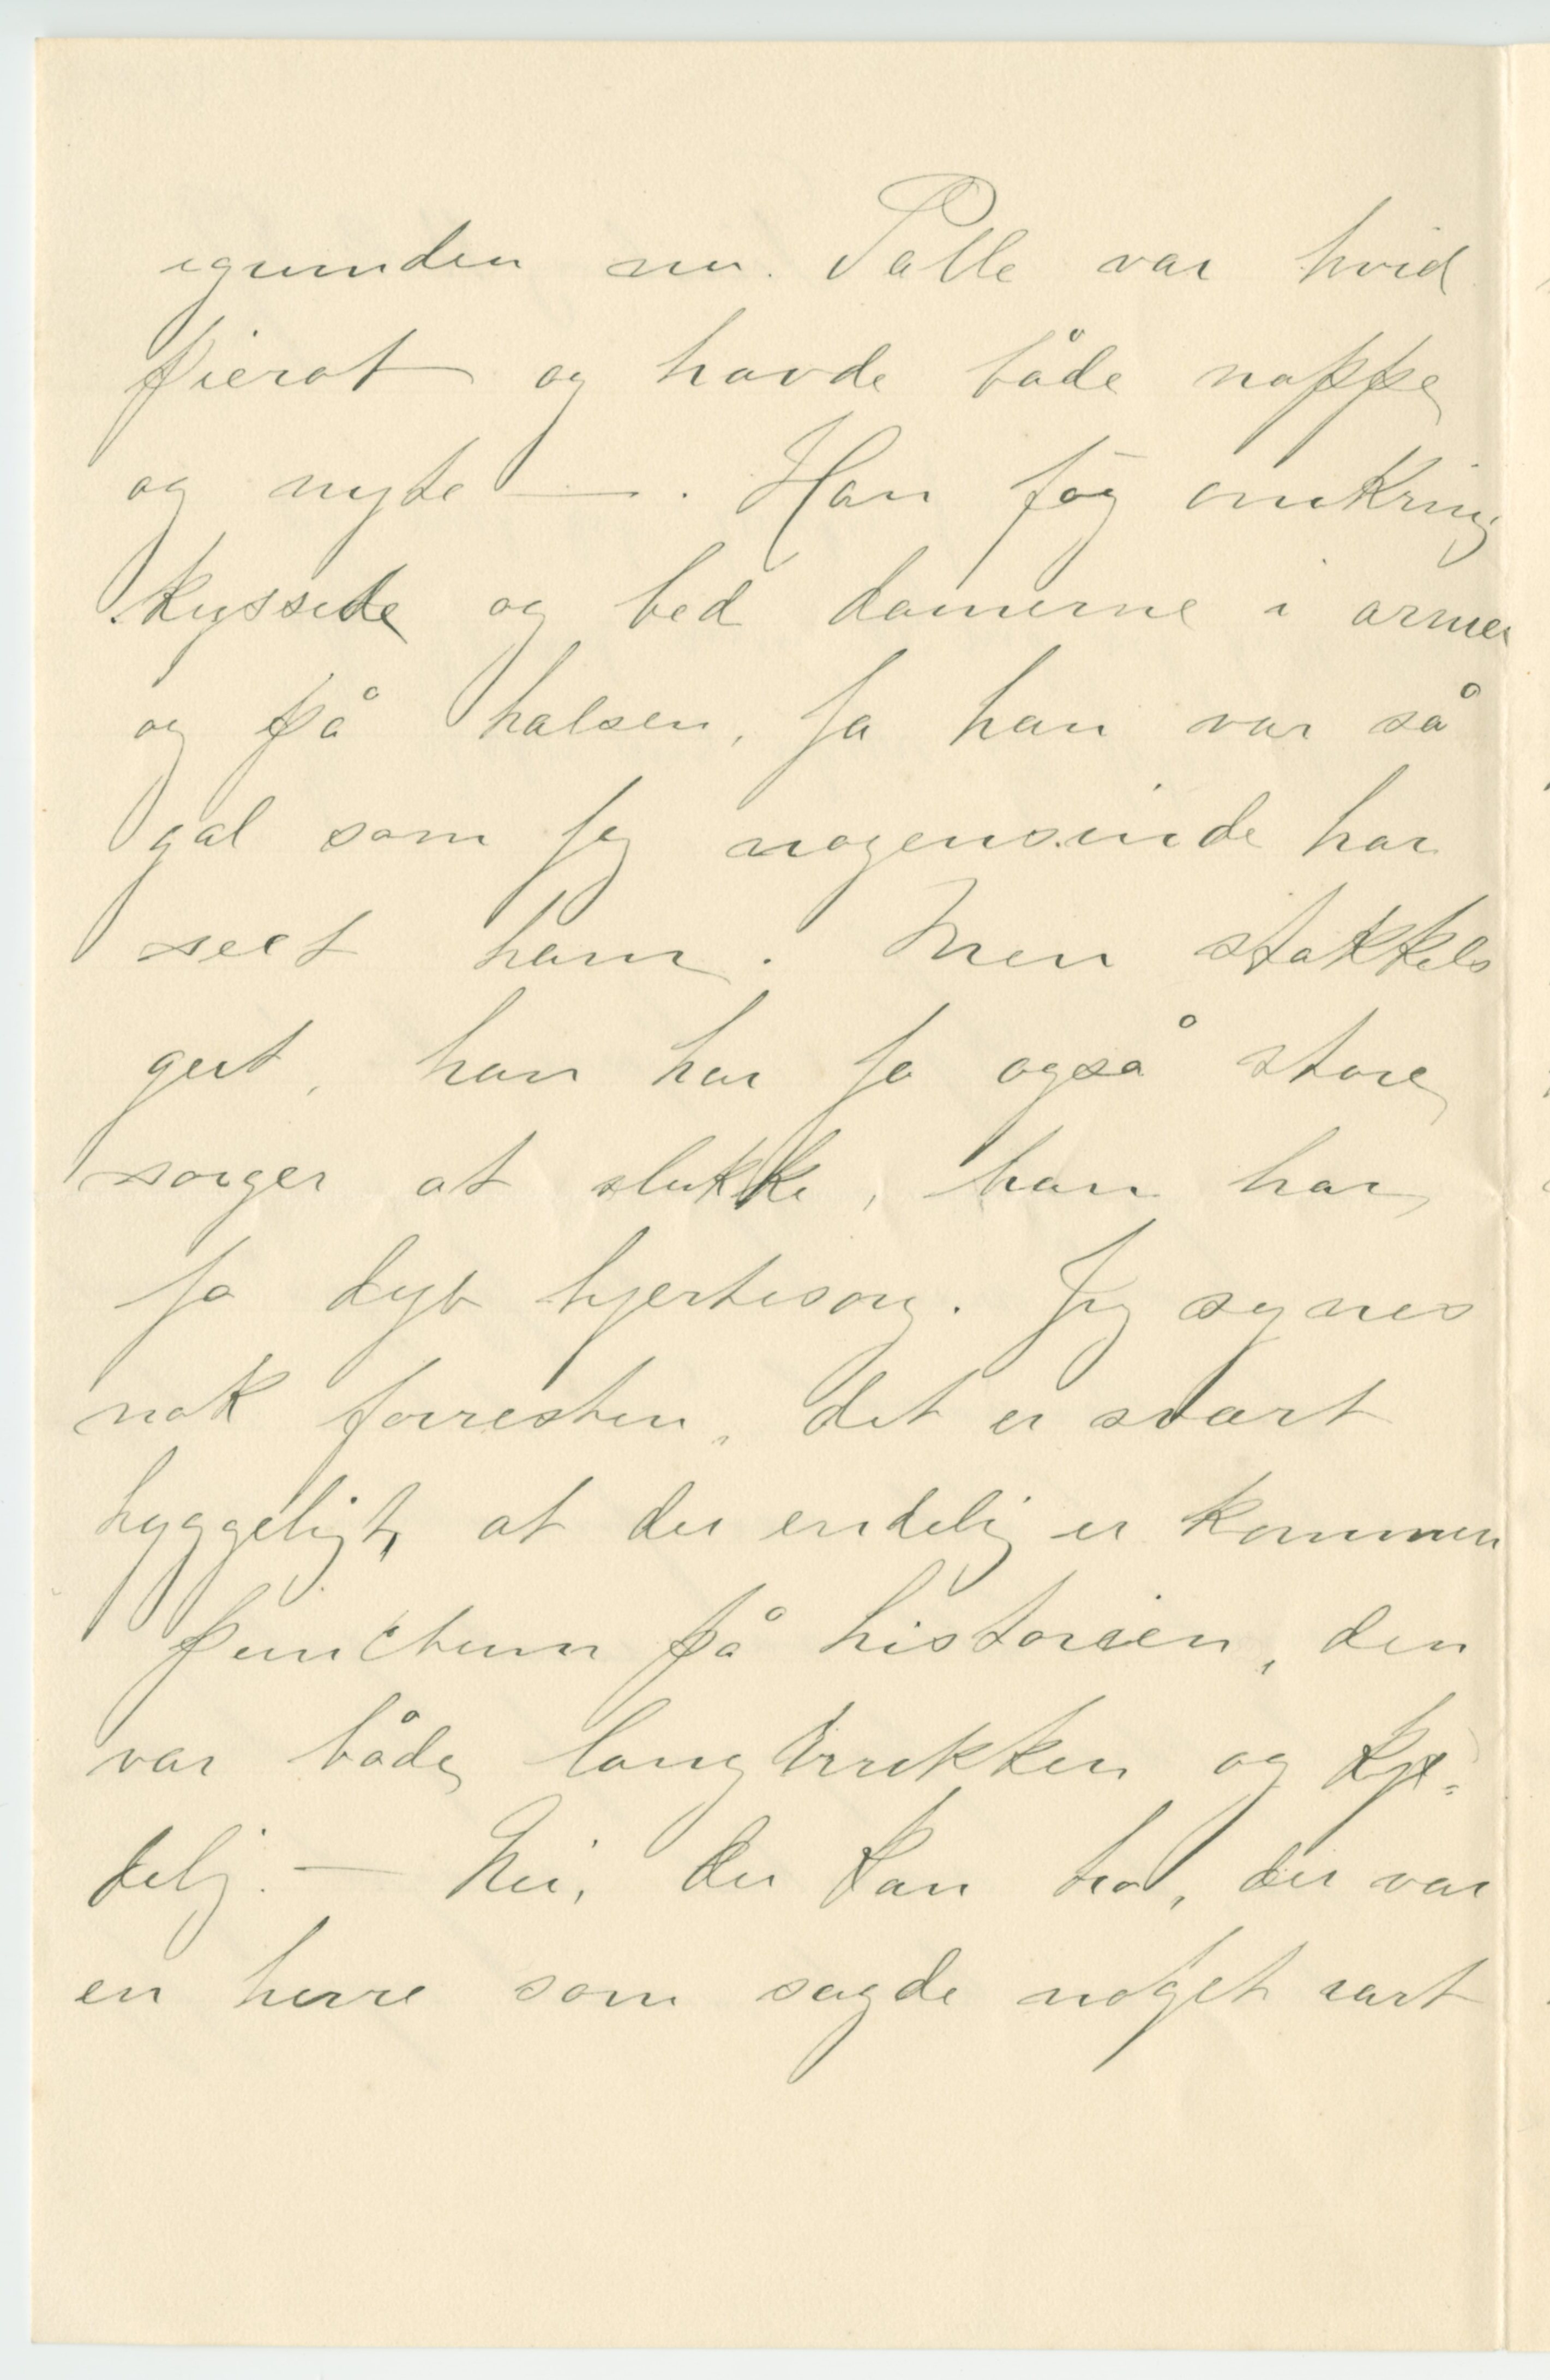 igrunden nu. Palle var hvid
pierot og havde både noppe
og nyde —. Han føg omkring
kyssede og bed damerne i armen
og på halsen, ja han var så
gal som jeg nogensinde har
seet ham. Men stakkels
gut, han har jo også store
sorger at slukke, han har
jo dyb hjertesorg. Jeg synes
nok forresten, det er svært
hyggeligt, at der endelig er kommen
punctum på historien, den
var både langtrukken og kje=
delig. — Nei, du kan tro, der var
en herre som sagde noget rart